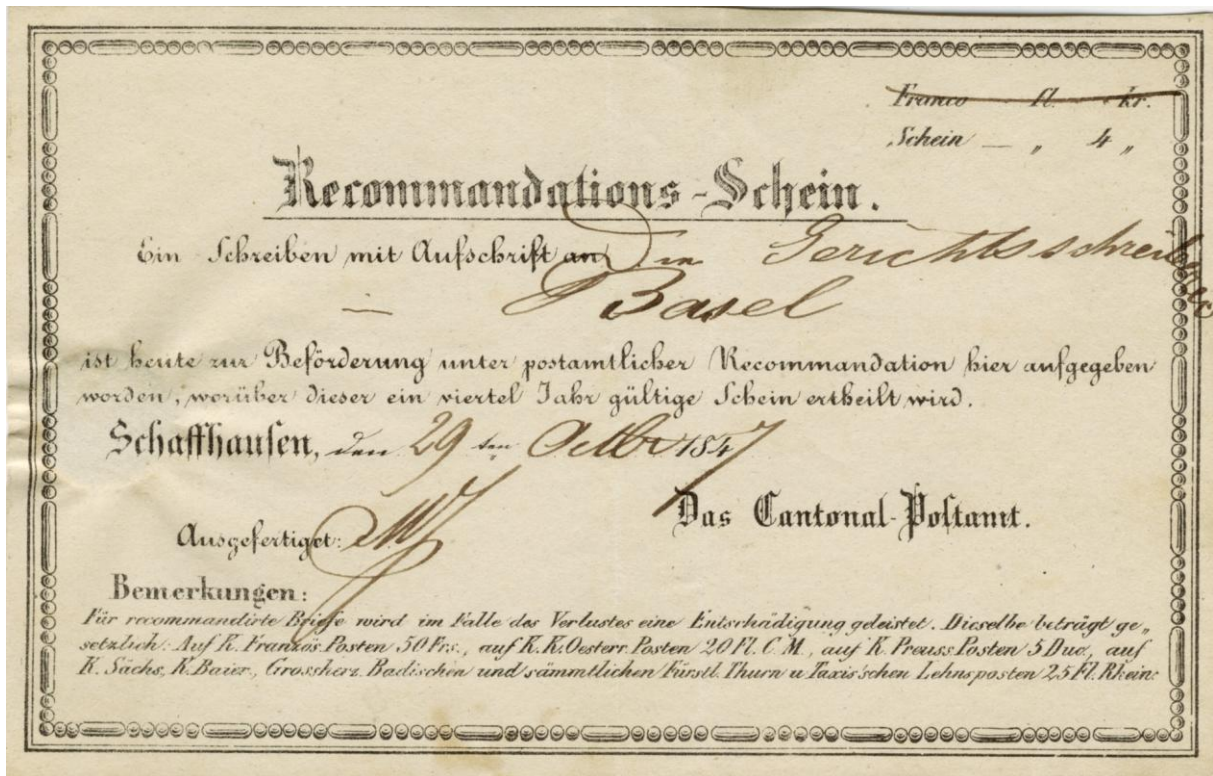 Franco — fl. — kr.
Schein — „ 4 „
Recommandations-Schein.
Ein Schreiben mit Aufschrift an Die Gerichtsschreiberei
— Basel
ist heute zur Beförderung unter postamtlicher Recommandation hier aufgegeben
worden, worüber dieser ein viertel Jahr gültige Schein ertheilt wird.
Schaffhausen, den 29 ten Octbr 1847
Das Cantonal-Postamt.
Ausgefertiget:
Bemerkungen:
Für recommandirte Briefe wird im Falle des Verlustes eine Entschädigung geleistet. Dieselbe beträgt ge„
setzlich: Auf K. Französ. Posten 50 Frs., auf K. K. Oesterr. Posten 20 Fl. C. M., auf K. Preuss Posten 5 Duc, auf
K. Sächs, K. Baier., Grossherz. Badischen und sämmtlichen Fürstl. Thurn u Taxis'schen Lehnsposten 25 Fl. Rhein: